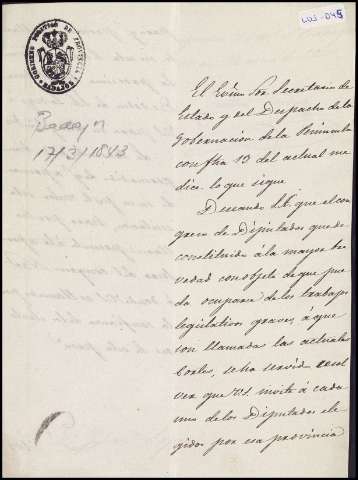 LU3-045
GOBIERNO POLITICO DE PROVINCIA
BADAJOZ
Badajoz
17/3/1843
El Excmo Sor. Secretario de
Estado y del Despacho de la
Gobernacion de la Peninsula
con fha 13 del actual me
dice lo que sigue
Deseando S.A. que el con
greso de Diputados quede
constituido á la mayor bre
vedad con objeto de que pue
da ocuparse de los trabajos
legislativos graves, á que
son llamadas las actuales
Cortes, se ha servido resol
ver que V.S. invite á cada
uno de los Diputados ele
gidos por esa provincia